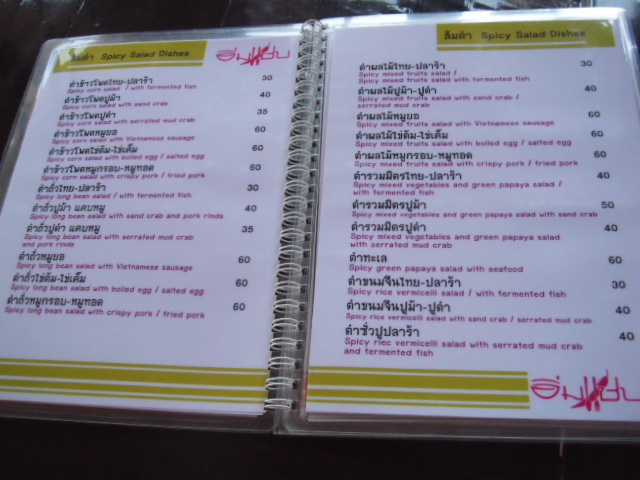 ส้มตำ Spicy Salad Dishes
อิ่มแซ่บ
ตำข้าวโพดไทย-ปลาร้า 30
Spicy corn salad / with fermented fish
ตำข้าวโพดปูม้า 40
Spicy corn salad with sand crab
ตำข้าวโพดปูดำ 35
Spicy corn salad with serrated mud crab
ตำข้าวโพดหมูยอ 60
Spicy corn salad with Vietnamese sausage
ตำข้าวโพดไข่ต้ม-ไข่เค็ม 60
Spicy corn salad with boiled egg / salted egg
ตำข้าวโพดหมูกรอบ-หมูทอด 60
Spicy corn salad with crispy pork / tried pork
ตำถั่วไทย-ปลาร้า 30
Spicy long bean salad / with fermented fish
ตำถั่วปูม้า แคบหมู 40
Spicy long bean salad with sand crab and pork rinds
ตำถั่วปูดำ แคบหมู 35
Spicy long bean salad with serrated mud crab
and pork rinds
ตำถั่วหมูยอ 60
Spicy long bean salad with Vietnamese sausage
ตำถั่วไข่ต้ม-ไข่เค็ม 60
Spicy long bean salad with boiled egg / salted egg
ตำถั่วหมูกรอบ-หมูทอด 60
Spicy long bean salad with crispy pork / tried pork
ส้มตำ Spicy Salad Dishes
ตำผลไม้ไทย-ปลาร้า 30
Spicy mixed fruits salad /
Spicy mixed fruits salad with fermented fish
ตำผลไม้ปูม้า-ปูดำ 40
Spicy mixed fruits salad with sand crab /
serrated mud crab
ตำผลไม้หมูยอ 60
Spicy mixed fruits salad with Vietnamese sausage
ตำผลไม้ไข่ต้ม-ไข่เค็ม 60
Spicy mixed fruits salad with boiled egg / salted egg
ตำผลไม้หมูกรอบ-หมูทอด 60
Spicy mixed fruits salad with crispy pork / tried pork
ตำรวมมิตรไทย-ปลาร้า 40
Spicy mixed vegetables and green papaya salad /
with fermented fish
ตำรวมมิตรปูม้า 50
Spicy mixed vegetables and green papaya salad with sand crab
ตำรวมมิตรปูดำ 40
Spicy mixed vegetables and green papaya salad
with serrated mud crab
ตำทะเล 60
Spicy green papaya salad with seafood
ตำขนมจีนไทย-ปลาร้า 30
Spicy rice vermicelli salad / with fermented fish
ตำขนมจีนปูม้า-ปูดำ 40
Spicy rice vermicelli salad with sand crab / serrated mud crab
ตำซั่วปูปลาร้า 40
Spicy riec vermicelli salad with serrated mud crab
and fermented fish
อิ่มแซ่บ